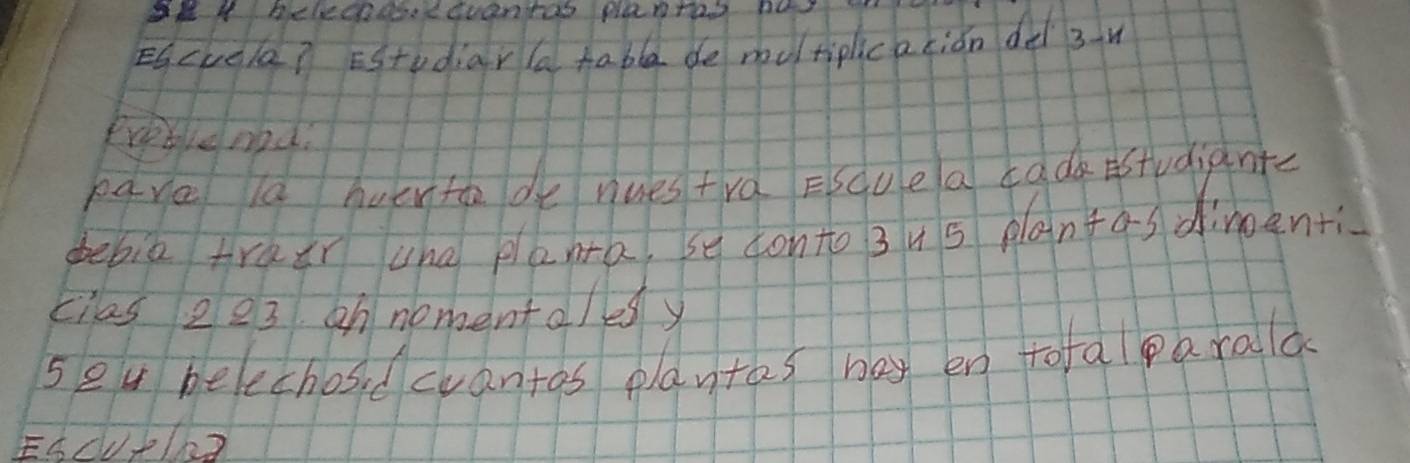 524 belechos.d cuantas plantas hay en
Escuela? Estudiar la tabla de multiplicación del 3-4
Problema:
para la huerta de nuestra Escuela cada Estudiante
debia traer una planta, se conto 345 plantas alimenti-
cias 223 ahnomentales y
524 belechos.d cuantas plantas hay en total para la
Escuela?